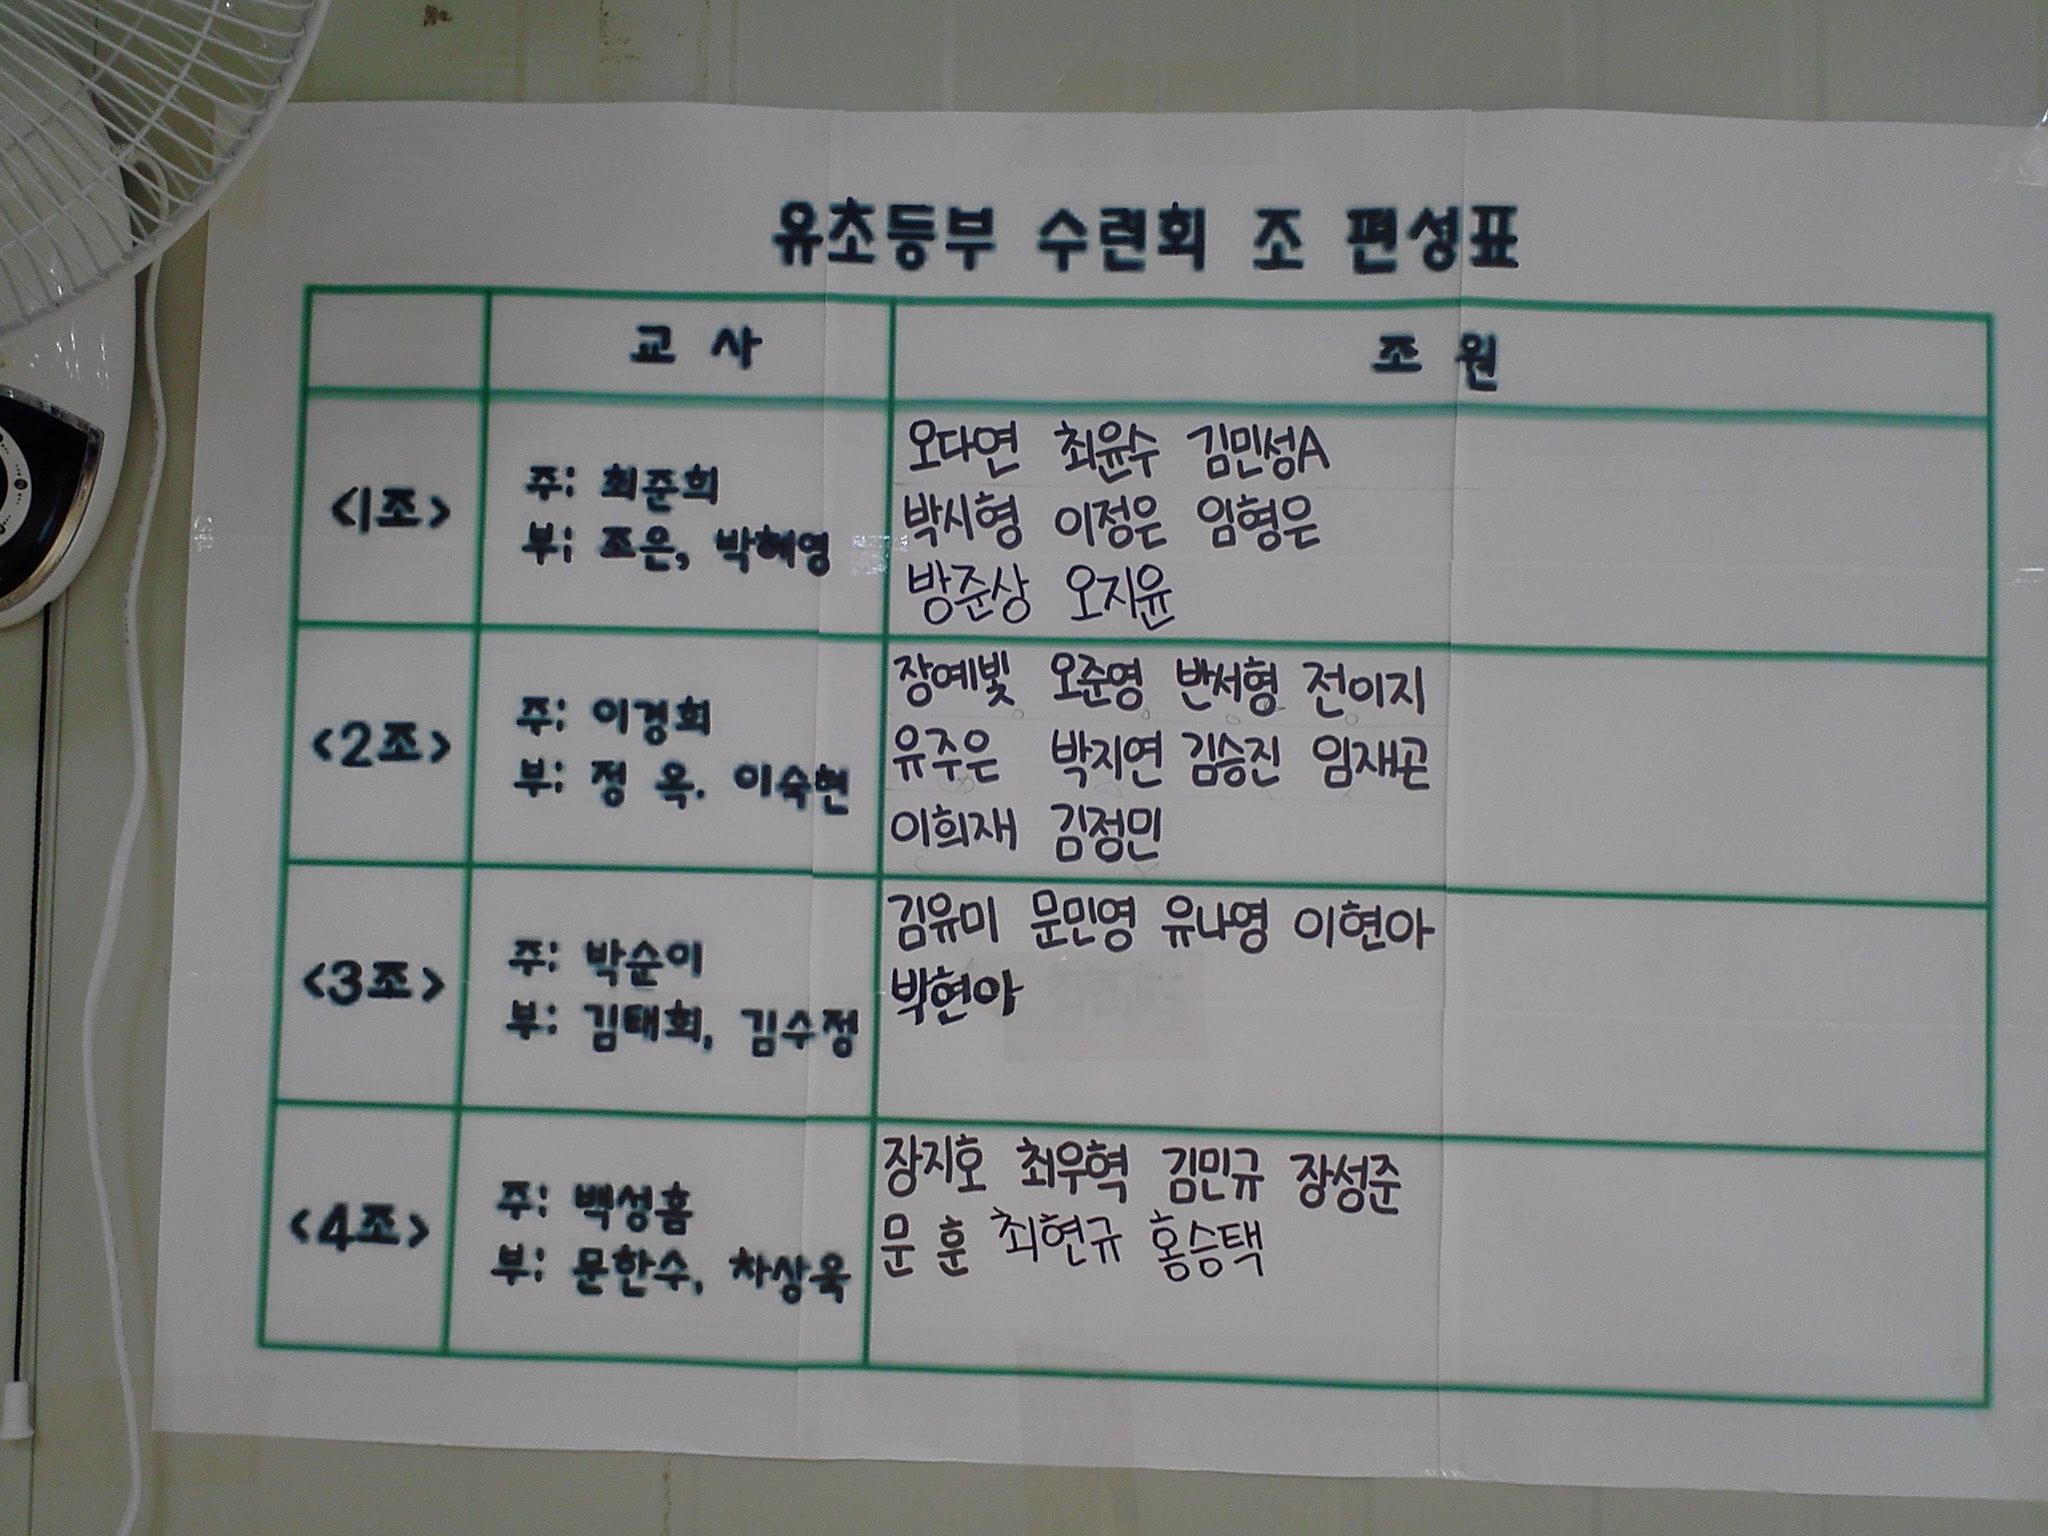 유초등부 수련회 조 편성표
교 사
조 원
<1조>
주: 최준희
부: 조은, 박혜영
오다연 최윤수 김민성A
박시형 이정은 임형은
방준상 오지윤
<2조>
주: 이경희
부: 정 옥. 이숙현
장예빛 오준영 반서형 전이지
유주은 박지연 김승진 임재곤
이희재 김정민
<3조>
주: 박순이
부: 김태희, 김수정
김유미 문민영 유나영 이현아
박현아
<4조>
주: 백성흠
부: 문한수, 차상욱
장지호 최우혁 김민규 장성준
문 훈 최현규 홍승택